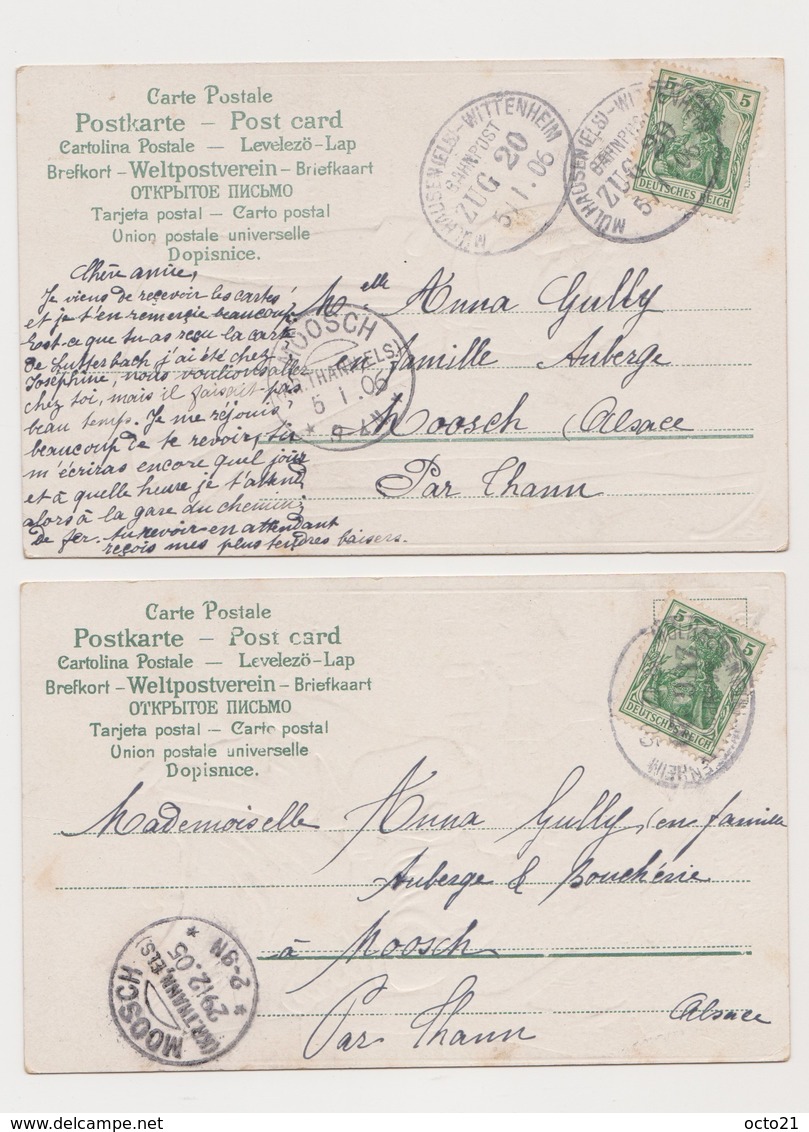 Carte Postale
Postkarte – Post card
Cartolina Postale – Levelező-Lap
Brefkort – Weltpostverein – Briefkaart
ОТКРЫТОЕ ПИСЬМО
Tarjeta postal – Carto postal
Union postale universelle
Dopisnice.
MÜLHAUSEN (ELS)–WITTENHEIM
BAHNPOST
ZUG 20
5 1. 06
MÜLHAUSEN (ELS)–WITTENHEIM
BAHNPOST
ZUG 20
5 1. 06
5 5
DEUTSCHES REICH
Chère annie,
Je viens de reçevoir les cartes
et je t'en remercie beaucoup.
Est-ce que tu as reçu la carte
de Lutterbach j'ai été chez
Joséphine, nous voulions aller
chez toi, mais il faisait pas
beau temps. Je me réjouis
beaucoup de te revoir, tu
m'écriras encore quel jour
et à quelle heure je t'attend
alors à la gare du chemin
de fer. Au revoir en attendant
reçois mes plus tendres baisers.
MOOSCH
(KR. THANN, ELS.)
5 1. 06
Melle Anna Gully
en famille Auberge
Moosch (Alsace
Par Thann
Carte Postale
Postkarte – Post card
Cartolina Postale – Levelező-Lap
Brefkort – Weltpostverein – Briefkaart
ОТКРЫТОЕ ПИСЬМО
Tarjeta postal – Carto postal
Union postale universelle
Dopisnice.
5 5
DEUTSCHES REICH
Mademoiselle Anna Gully, en famille
Auberge & Boucherie
à Moosch
Par Thann Alsace
MOOSCH
(KR. THANN, ELS.)
29 12. 05
2-3N
octo21